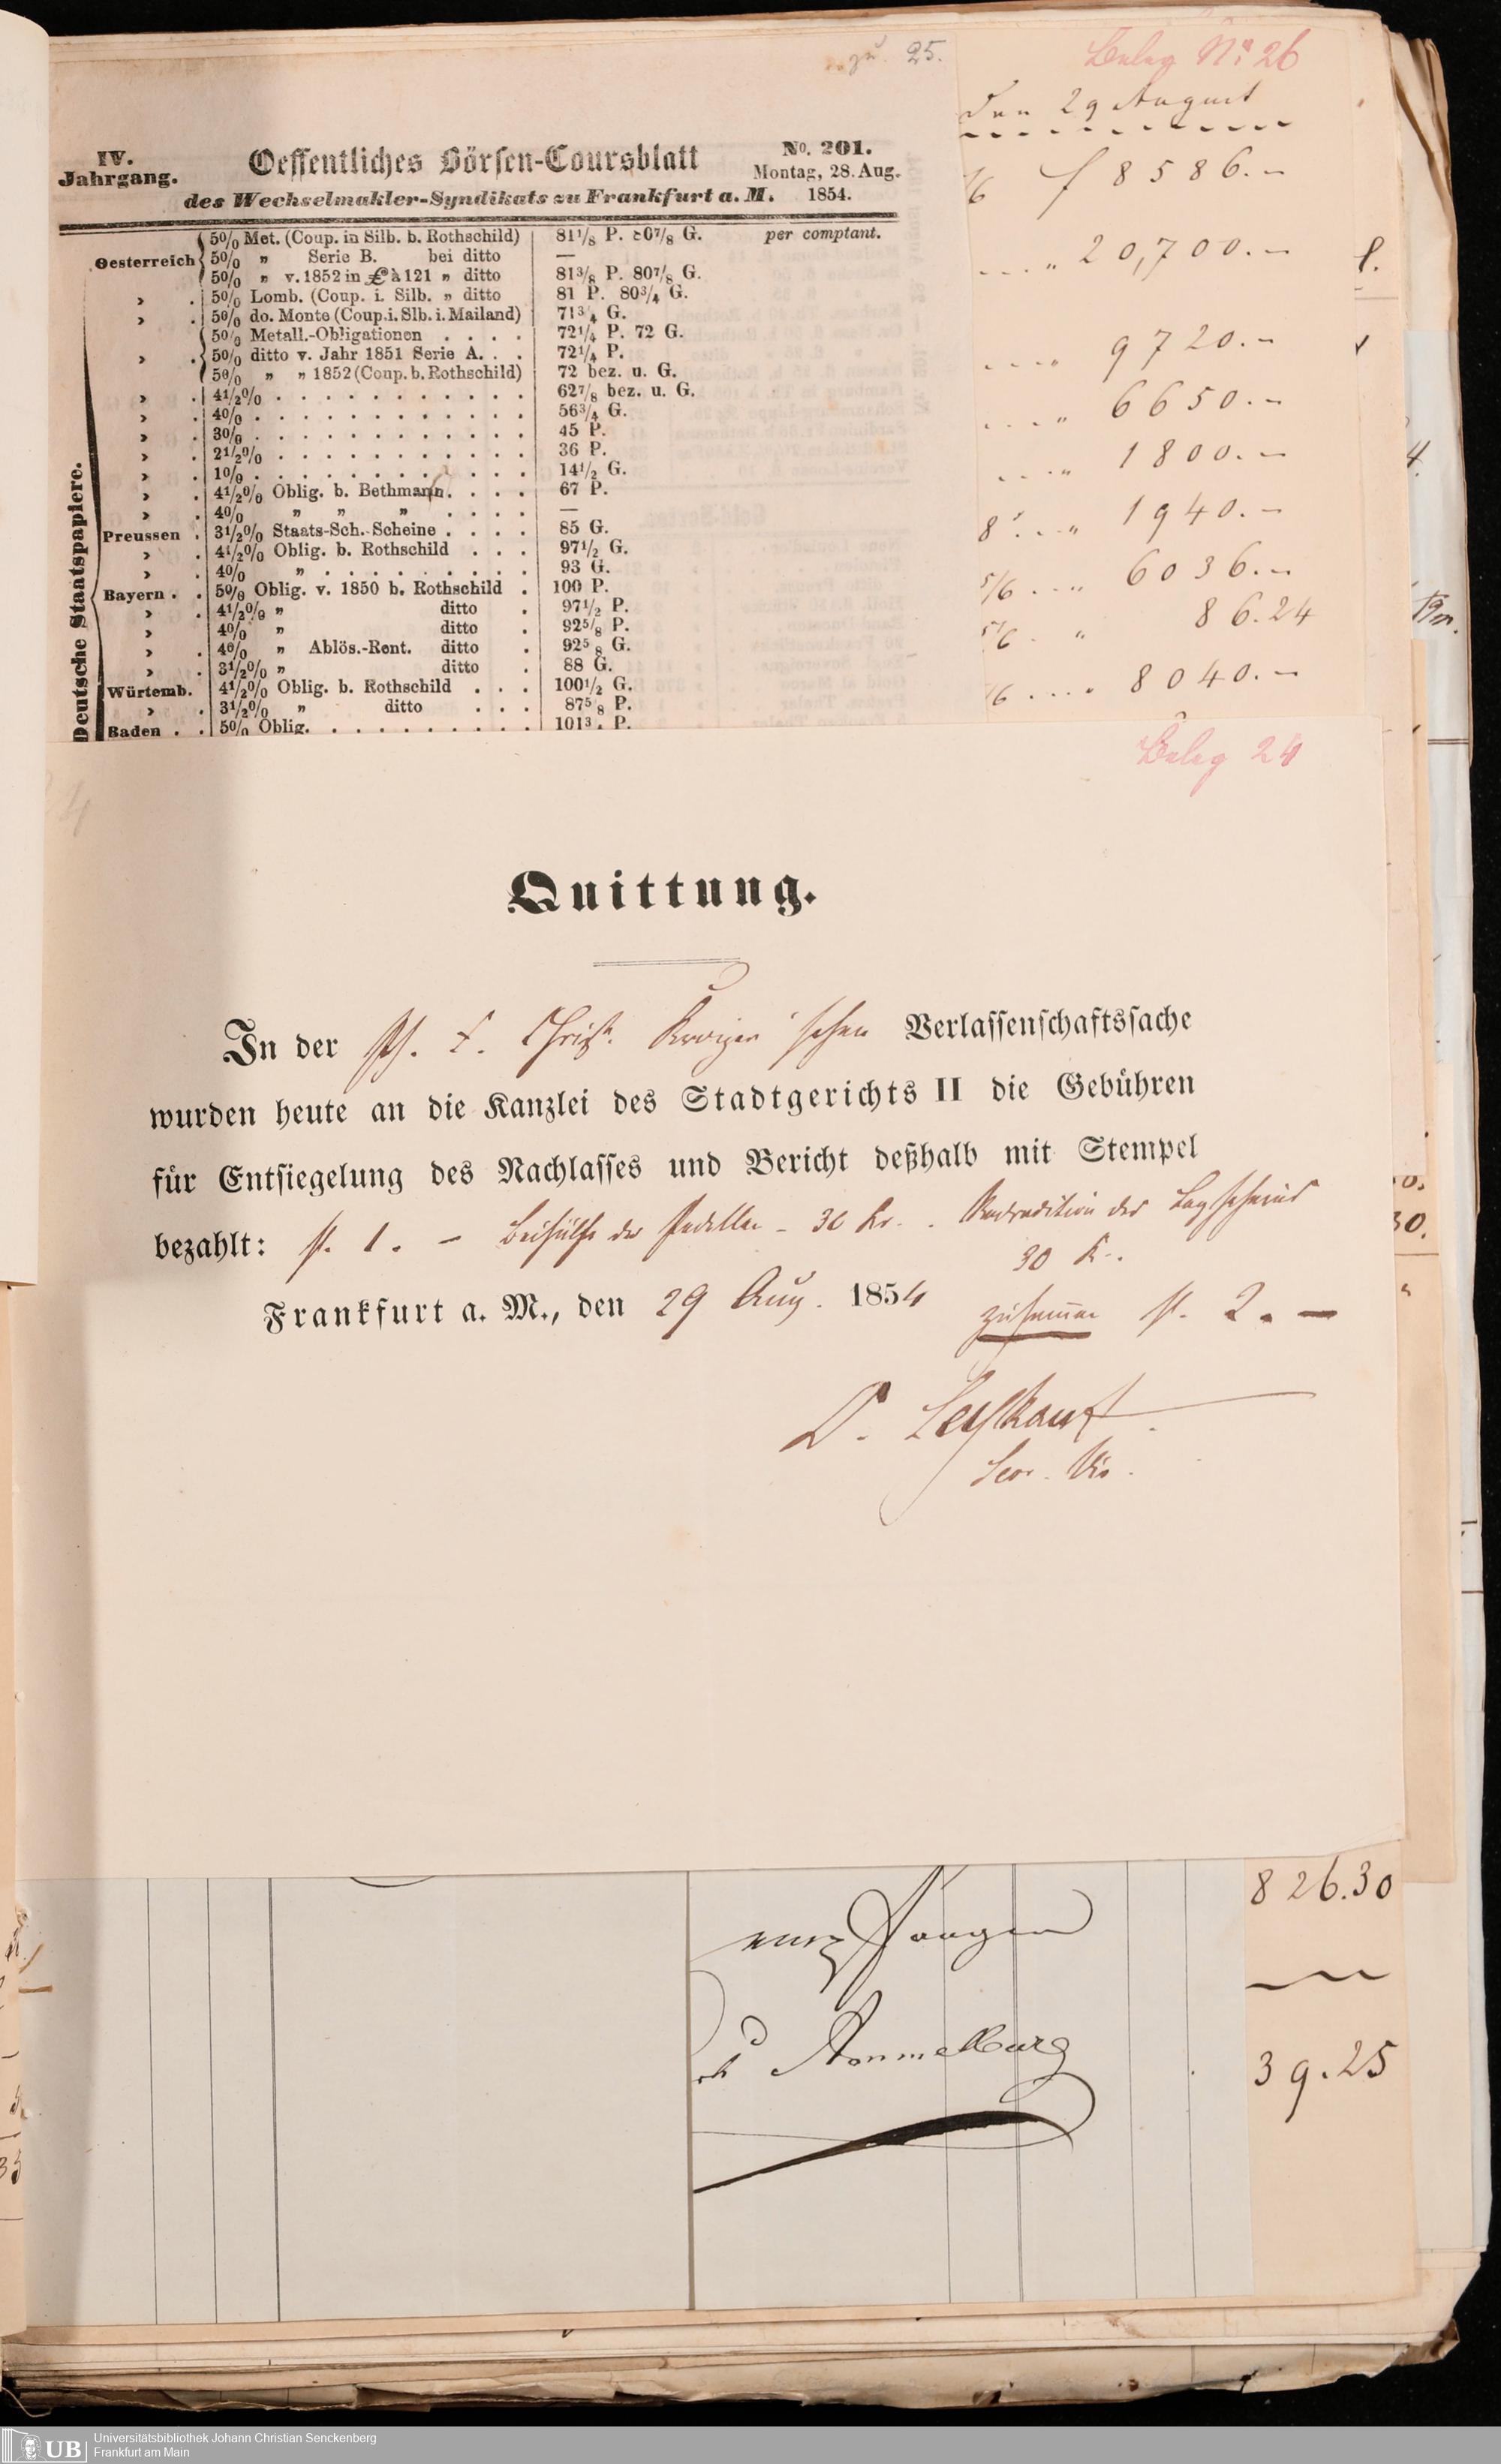 zu 25.
IV.
Jahrgang.
Oeffentliches Börsen-Coursblatt
des Wechselmakler-Syndikats zu Frankfurt a. M.
No. 201.
Montag, 28. Aug.
1854.
per comptant.
Deutsche Staatspapiere.
Oesterreich
5% Met. (Coup. in Silb. b. Rothschild) 81⅛ P. 80⅞ G.
5% „ Serie B. bei ditto —
5% „ v. 1852 in £ à 121 „ ditto 81⅜ P. 80⅞ G.
› . 5% Lomb. (Coup. i. Silb. „ ditto 81 P. 80¾ G.
› . 5% do. Monte (Coup. i. Slb. i. Mailand) 71¾ G.
5% Metall.-Obligationen . . . . 72¼ P. 72 G.
› . 5% ditto v. Jahr 1851 Serie A. . . 72¼ P.
5% „ „ 1852 (Coup. b. Rothschild) 72 bez. u. G.
› . 4½% . . . . . . . . . . . 62⅞ bez. u. G.
› . 4% . . . . . . . . . . . . 56¾ G.
› . 3% . . . . . . . . . . . . 45 P.
› . 2½% . . . . . . . . . . . 36 P.
› . 1% . . . . . . . . . . . . 14½ G.
› . 4½% Oblig. b. Bethmann. . . . 67 P.
› . 4% „ „ „ . . . . —
Preussen . 3½% Staats-Sch.-Scheine . . . . 85 G.
› . 4½% Oblig. b. Rothschild . . . 97½ G.
› . 4% „ . . . . . . . . . 93 G.
Bayern . . 5% Oblig. v. 1850 b. Rothschild . 100 P.
› . 4½% „ ditto . 97½ P.
› 4% „ ditto . 92⅝ P.
› . 4% „ Ablös.-Rent. ditto . 92⅝ G.
› . 3½% „ ditto . 88 G.
Würtemb. 4½% Oblig. b. Rothschild . . . 100½ G.
› . 3½% „ ditto . . . 87⅝ P.
Baden . . 5% Oblig. . . . . . . . . . 101¾ P.
Beleg No 26
Den 29 August
f 8586.–
„ 20,700.–
„ 9720.–
„ 6650.–
„ 1800.–
„ 1940.–
„ 6036.–
„ 86.24
„ 8040.–
Beleg 24
Quittung.
In der Ph. F. Christ. Kroiger'schen Verlassenschaftssache
wurden heute an die Kanzlei des Stadtgerichts II die Gebühren
für Entsiegelung des Nachlasses und Bericht deßhalb mit Stempel
bezahlt: fl. 1. – Beihülfe der Pedellen – 30 Kr. . Retradition des Legscheins
30 Kr.
Frankfurt a. M., den 29 Aug. 1854 zusammen fl. 2. –
Dr.
826.30
empfangen
Ammelburg
39.25
UB
Universitätsbibliothek Johann Christian Senckenberg
Frankfurt am Main